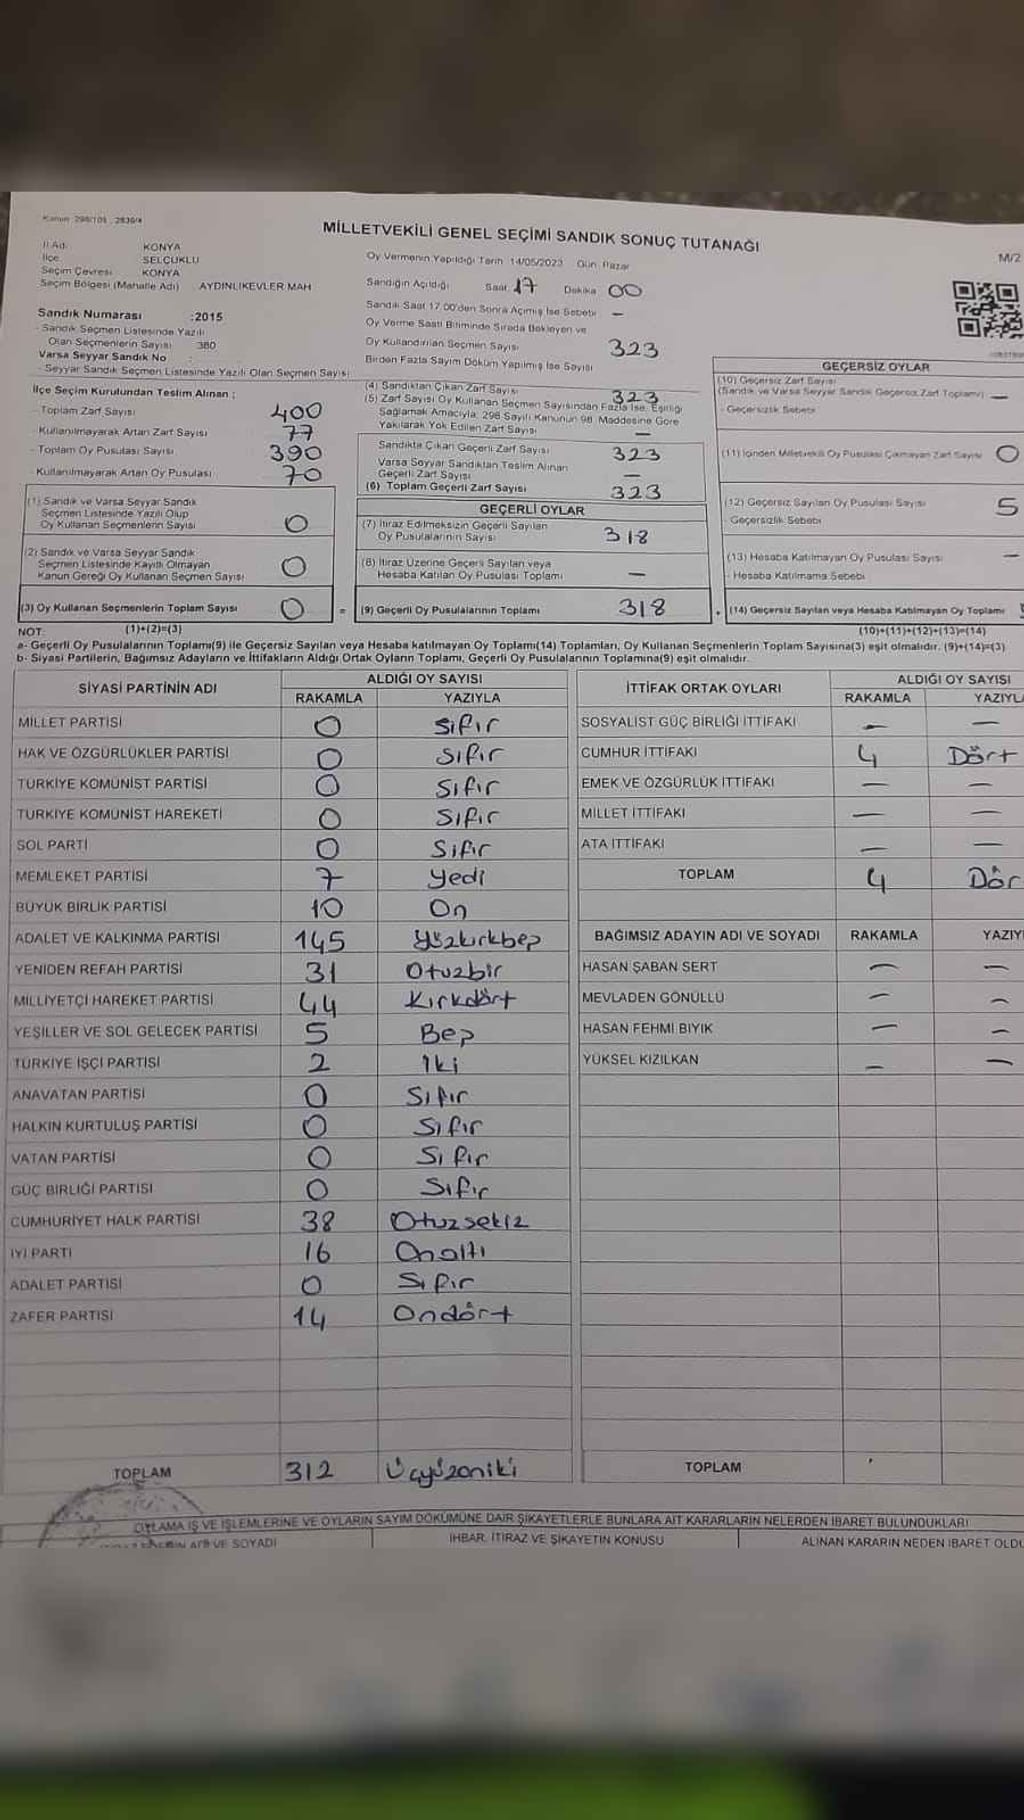 Kanun 298/105 , 2839/4
MİLLETVEKİLİ GENEL SEÇİMİ SANDIK SONUÇ TUTANAĞI
M/2
İl Adı: KONYA
İlçe SELÇUKLU
Seçim Çevresi KONYA
Seçim Bölgesi (Mahalle Adı) AYDINLIKEVLER MAH
Oy Vermenin Yapıldığı Tarih 14/05/2023 Gün Pazar
Sandığın Açıldığı Saat 17 Dakika 00
Sandık Saat 17.00'den Sonra Açılmış İse Sebebi –
Oy Verme Saati Bitiminde Sırada Bekleyen ve
Oy Kullandırılan Seçmen Sayısı 323
Birden Fazla Sayım Döküm Yapılmış İse Sayısı
Sandık Numarası :2015
- Sandık Seçmen Listesinde Yazılı
Olan Seçmenlerin Sayısı 380
Varsa Seyyar Sandık No :
- Seyyar Sandık Seçmen Listesinde Yazılı Olan Seçmen Sayısı
İlçe Seçim Kurulundan Teslim Alınan ;
- Toplam Zarf Sayısı 400
- Kullanılmayarak Artan Zarf Sayısı 77
- Toplam Oy Pusulası Sayısı 390
- Kullanılmayarak Artan Oy Pusulası 70
(1) Sandık ve Varsa Seyyar Sandık
Seçmen Listesinde Yazılı Olup
Oy Kullanan Seçmenlerin Sayısı 0
(2) Sandık ve Varsa Seyyar Sandık
Seçmen Listesinde Kayıtlı Olmayan
Kanun Gereği Oy Kullanan Seçmen Sayısı 0
(3) Oy Kullanan Seçmenlerin Toplam Sayısı 0
(1)+(2)=(3)
(4) Sandıktan Çıkan Zarf Sayısı 323
(5) Zarf Sayısı Oy Kullanan Seçmen Sayısından Fazla İse, Eşitliği
Sağlamak Amacıyla; 298 Sayılı Kanunun 98. Maddesine Göre
Yakılarak Yok Edilen Zarf Sayısı –
Sandıkta Çıkan Geçerli Zarf Sayısı 323
Varsa Seyyar Sandıktan Teslim Alınan
Geçerli Zarf Sayısı –
(6) Toplam Geçerli Zarf Sayısı 323
GEÇERLİ OYLAR
(7) İtiraz Edilmeksizin Geçerli Sayılan
Oy Pusulalarının Sayısı 318
(8) İtiraz Üzerine Geçerli Sayılan veya
Hesaba Katılan Oy Pusulası Toplamı –
= (9) Geçerli Oy Pusulalarının Toplamı 318
GEÇERSİZ OYLAR
(10) Geçersiz Zarf Sayısı
(Sandık ve Varsa Seyyar Sandık Geçersiz Zarf Toplamı) –
- Geçersizlik Sebebi
(11) İçinden Milletvekili Oy Pusulası Çıkmayan Zarf Sayısı 0
(12) Geçersiz Sayılan Oy Pusulası Sayısı 5
Geçersizlik Sebebi
(13) Hesaba Katılmayan Oy Pusulası Sayısı –
- Hesaba Katılmama Sebebi
+ (14) Geçersiz Sayılan veya Hesaba Katılmayan Oy Toplamı
(10)+(11)+(12)+(13)=(14)
NOT:
a- Geçerli Oy Pusulalarının Toplamı(9) ile Geçersiz Sayılan veya Hesaba katılmayan Oy Toplamı(14) Toplamları, Oy Kullanan Seçmenlerin Toplam Sayısına(3) eşit olmalıdır. (9)+(14)=(3)
b- Siyasi Partilerin, Bağımsız Adayların ve İttifakların Aldığı Ortak Oyların Toplamı, Geçerli Oy Pusulalarının Toplamına(9) eşit olmalıdır.
SİYASİ PARTİNİN ADI ALDIĞI OY SAYISI
RAKAMLA YAZIYLA
MİLLET PARTİSİ 0 Sıfır
HAK VE ÖZGÜRLÜKLER PARTİSİ 0 Sıfır
TÜRKİYE KOMÜNİST PARTİSİ 0 Sıfır
TÜRKİYE KOMÜNİST HAREKETİ 0 Sıfır
SOL PARTİ 0 Sıfır
MEMLEKET PARTİSİ 7 Yedi
BÜYÜK BİRLİK PARTİSİ 10 On
ADALET VE KALKINMA PARTİSİ 145 Yüzkırkbeş
YENİDEN REFAH PARTİSİ 31 Otuzbir
MİLLİYETÇİ HAREKET PARTİSİ 44 Kırkdört
YEŞİLLER VE SOL GELECEK PARTİSİ 5 Beş
TÜRKİYE İŞÇİ PARTİSİ 2 İki
ANAVATAN PARTİSİ 0 Sıfır
HALKIN KURTULUŞ PARTİSİ 0 Sıfır
VATAN PARTİSİ 0 Sıfır
GÜÇ BİRLİĞİ PARTİSİ 0 Sıfır
CUMHURİYET HALK PARTİSİ 38 Otuzsekiz
İYİ PARTİ 16 Onaltı
ADALET PARTİSİ 0 Sıfır
ZAFER PARTİSİ 14 Ondört
TOPLAM 312 Üçyüzoniki
İTTİFAK ORTAK OYLARI ALDIĞI OY SAYISI
RAKAMLA YAZIYLA
SOSYALİST GÜÇ BİRLİĞİ İTTİFAKI – –
CUMHUR İTTİFAKI 4 Dört
EMEK VE ÖZGÜRLÜK İTTİFAKI – –
MİLLET İTTİFAKI – –
ATA İTTİFAKI – –
TOPLAM 4 Dör
BAĞIMSIZ ADAYIN ADI VE SOYADI RAKAMLA YAZIY
HASAN ŞABAN SERT – –
MEVLADEN GÖNÜLLÜ – –
HASAN FEHMİ BIYIK – –
YÜKSEL KIZILKAN – –
TOPLAM
OYLAMA İŞ VE İŞLEMLERİNE VE OYLARIN SAYIM DÖKÜMÜNE DAİR ŞİKAYETLERLE BUNLARA AİT KARARLARIN NELERDEN İBARET BULUNDUKLARI
ADI VE SOYADI İHBAR, İTİRAZ VE ŞİKAYETİN KONUSU ALINAN KARARIN NEDEN İBARET OLDU